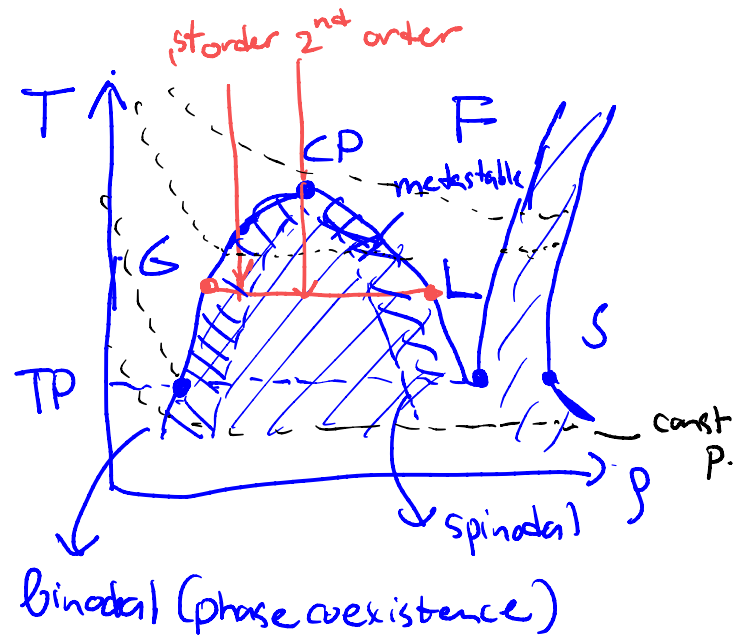 1st order 2nd order
T
CP
F
metastable
G
L
S
TP
const
p.
ρ
spinodal
binodal (phase coexistence)